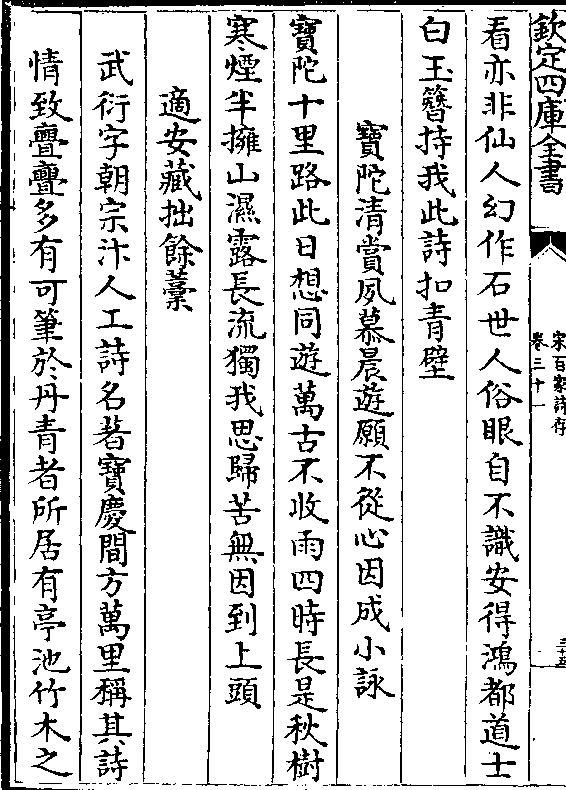 欽定四庫全書
宋百家詩存
卷三十一
看亦非仙人幻作石世人俗眼自不識安得鴻都道士
白玉簪持我此詩扣青壁
寶陀清賞夙慕晨遊願不從心因成小詠
寶陀十里路此日想同遊萬古不收雨四時長是秋樹
寒煙半擁山濕露長流獨我思歸苦無因到上頭
適安藏拙餘藁
武衍字朝宗汴人工詩名著寶慶間方萬里稱其詩
情致亹亹多有可筆於丹青者所居有亭池竹木之